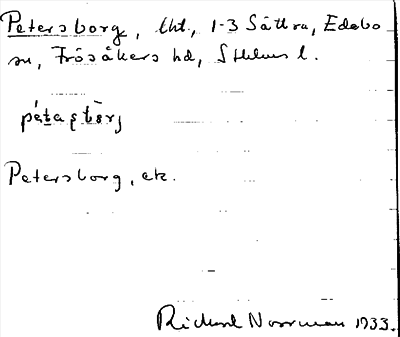 Petersborg, lht, 1-3 Sättra, Edebo
sn, Frösåkers hd, Sthlms l.
Petersborg, ek.
Richard Norrman 1933.